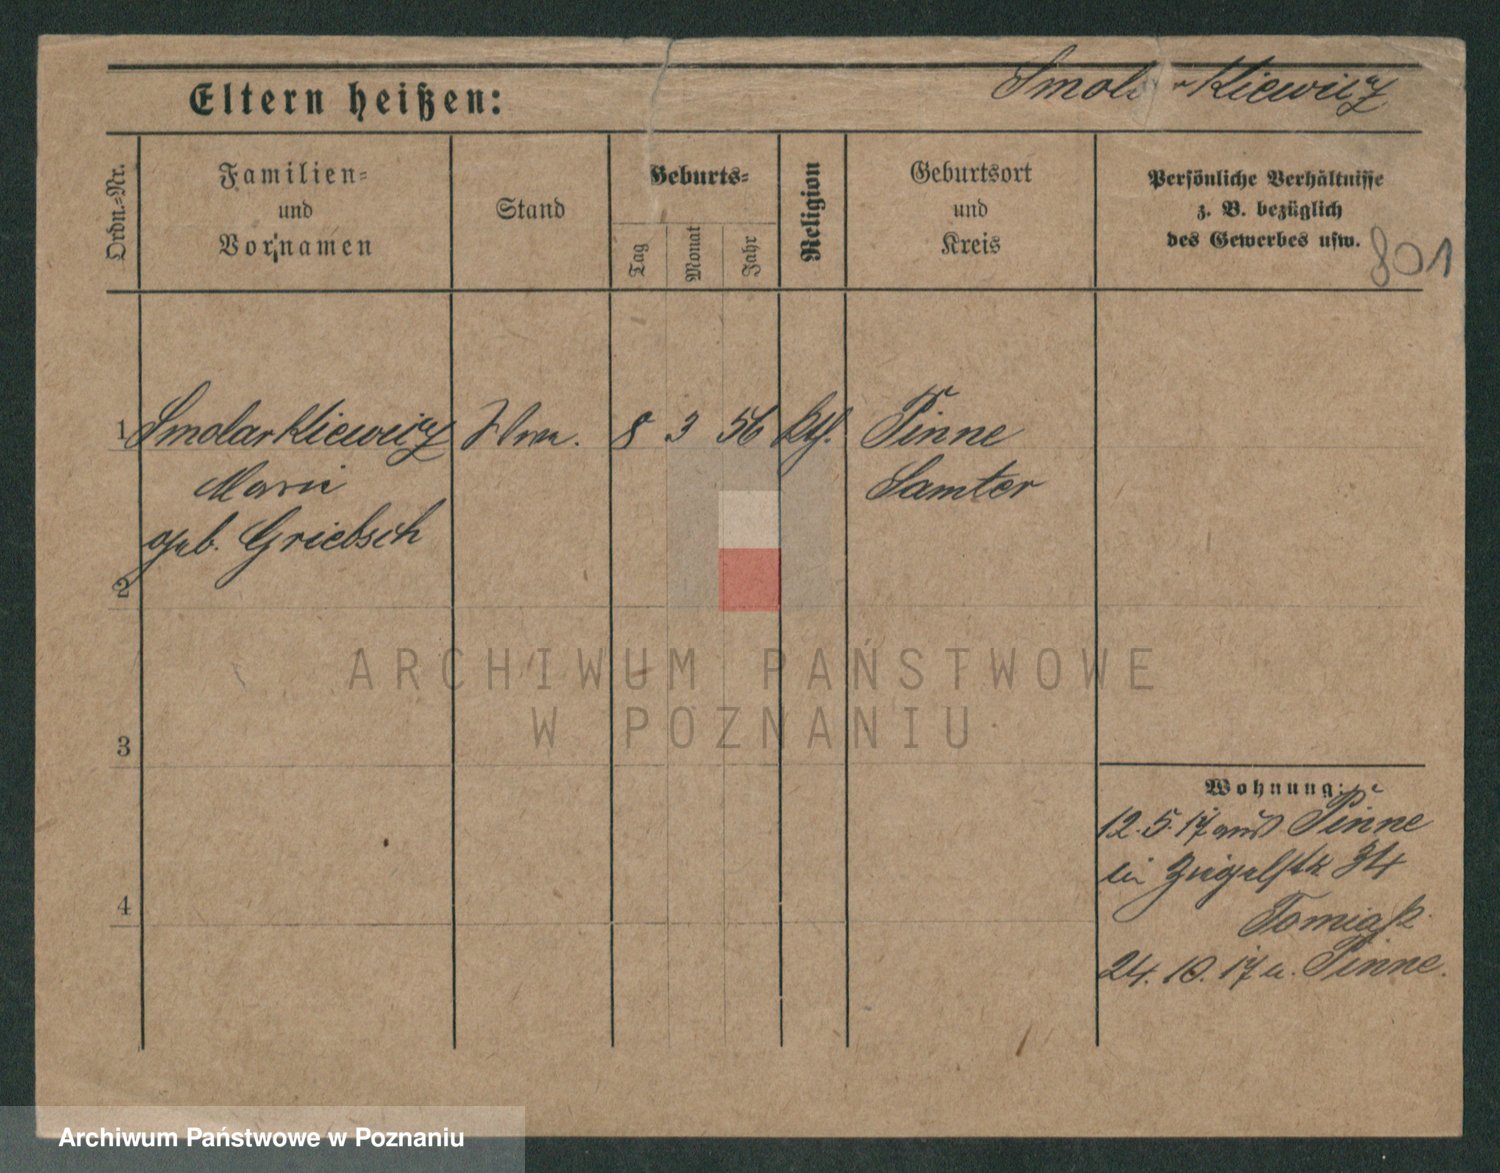 Eltern heißen:
Smolarkiewicz
Ordn.-Nr.
Familien-
und
Vornamen
Stand
Geburts-
Tag
Monat
Jahr
Religion
Geburtsort
und
Kreis
Persönliche Verhältnisse
z. B. bezüglich
des Gewerbes usw.
801
1 Smolarkiewicz Wwe. 8 3 56 Kth. Pinne
Marie Samter
geb. Griebsch
2
ARCHIWUM PAŃSTWOWE
W POZNANIU
3
4
Wohnung:
12.5.17 aus Pinne
in Ziegelstr. 34
Tomiak
24.10.17 n. Pinne.
Archiwum Państwowe w Poznaniu